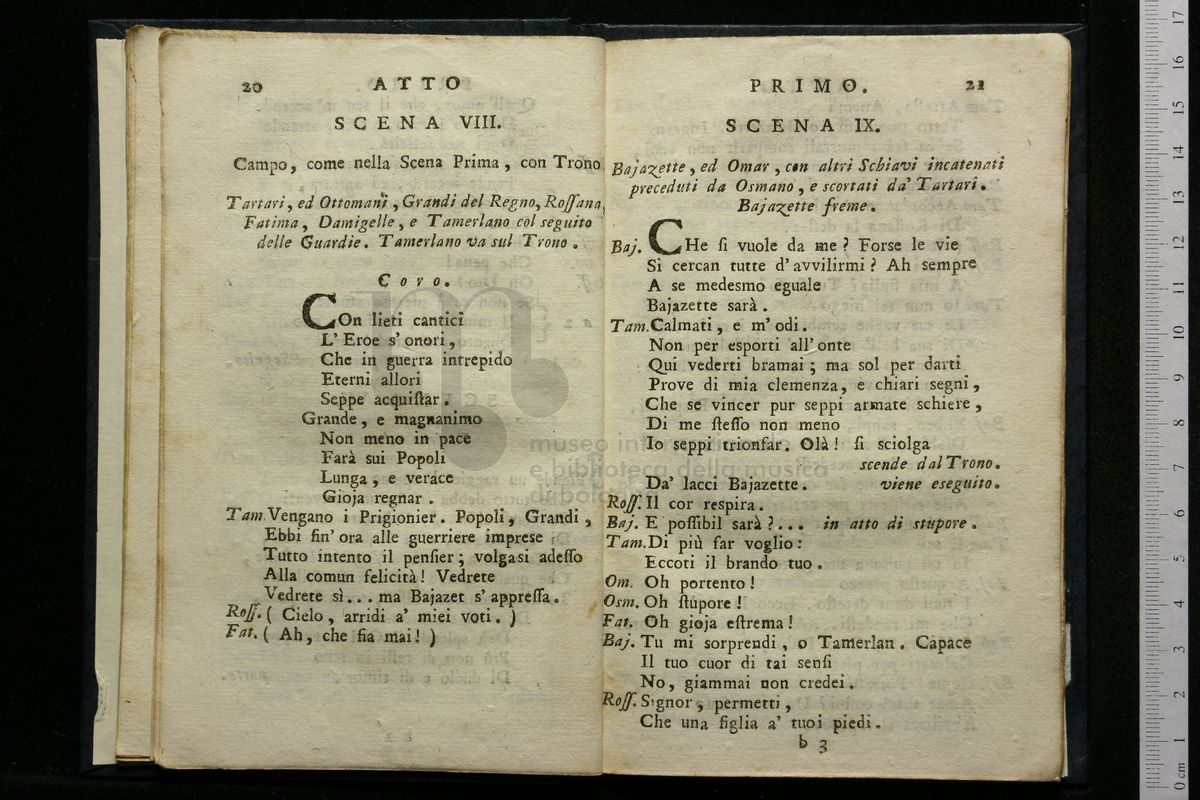 20 ATTO
SCENA VIII.
Campo, come nella Scena Prima, con Trono
Tartari, ed Ottomani, Grandi del Regno, Roſſana,
Fatima, Damigelle, e Tamerlano col seguito
delle Guardie. Tamerlano va sul Trono.
Coro.
COn lieti cantici
L' Eroe s' onori,
Che in guerra intrepido
Eterni allori
Seppe acquiſtar.
Grande, e magnanimo
Non meno in pace
Farà sui Popoli
Lunga, e verace
Gioja regnar.
Tam. Vengano i Prigionier. Popoli, Grandi,
Ebbi fin' ora alle guerriere imprese
Tutto intento il pensier; volgasi adeſſo
Alla comun felicità! Vedrete
Vedrete sì... ma Bajazet s' appreſſa.
Roſſ. ( Cielo, arridi a' miei voti. )
Fat. ( Ah, che fia mai! )
PRIMO. 21
SCENA IX.
Bajazette, ed Omar, con altri Schiavi incatenati
preceduti da Osmano, e scortati da' Tartari.
Bajazette freme.
Baj. CHe ſi vuole da me? Forse le vie
Si cercan tutte d' avvilirmi? Ah sempre
A se medesmo eguale
Bajazette sarà.
Tam. Calmati, e m' odi.
Non per esporti all' onte
Qui vederti bramai; ma sol per darti
Prove di mia clemenza, e chiari segni,
Che se vincer pur seppi armate schiere,
Di me ſteſſo non meno
Io seppi trionfar. Olà! ſi sciolga
scende dal Trono.
Da' lacci Bajazette. viene eseguito.
Roſſ. Il cor respira.
Baj. E poſſibil sarà?... in atto di stupore.
Tam. Di più far voglio:
Eccoti il brando tuo.
Om. Oh portento!
Osm. Oh ſtupore!
Fat. Oh gioja eſtrema!
Baj. Tu mi sorprendi, o Tamerlan. Capace
Il tuo cuor di tai senſi
No, giammai non credei.
Roſſ. Signor, permetti,
Che una figlia a' tuoi piedi.
b 3
museo internazionale
e biblioteca della musica
di bologna
0 cm 1 2 3 4 5 6 7 8 9 10 11 12 13 14 15 16 17